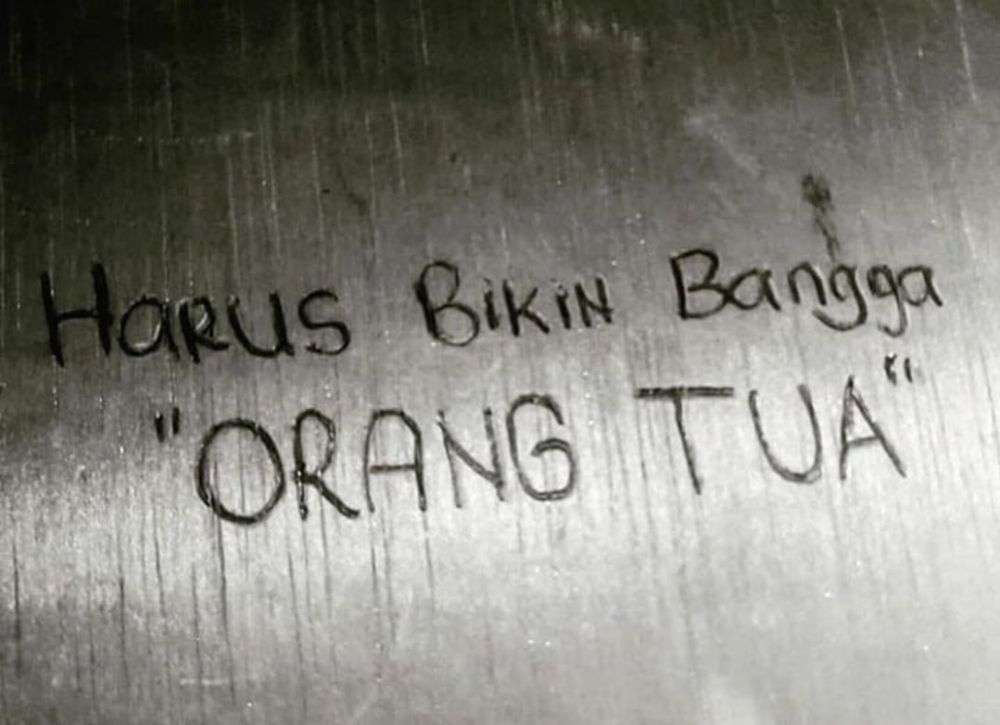 Harus Bikin Bangga
"ORANG TUA"